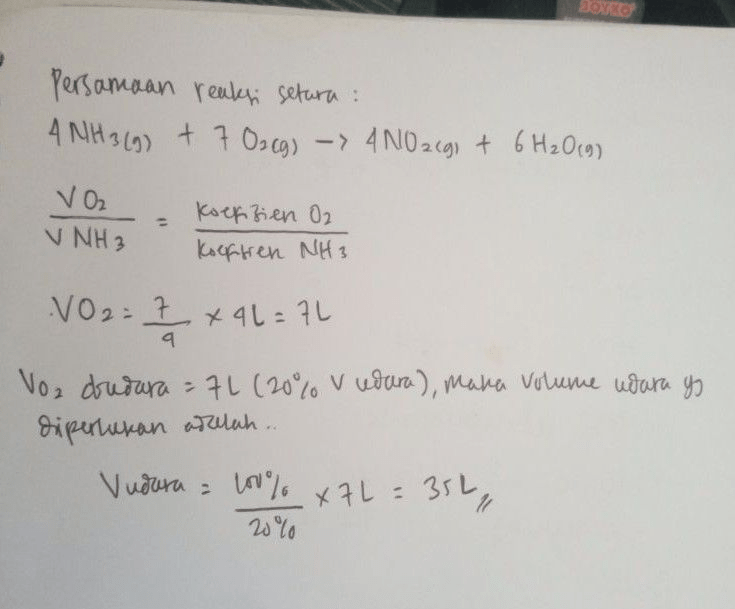 JOYKO
Persamaan reaksi setara :
4 NH3(g) + 7 O2(g) -> 4NO2(g) + 6 H2O(g)
V O2 / V NH3 = Koefisien O2 / Koefisien NH3
VO2 = 7/4 x 4L = 7L
VO2 diudara = 7L (20% V udara), maka volume udara yg
diperlukan adalah ..
V udara = 100% / 20% x 7L = 35L //